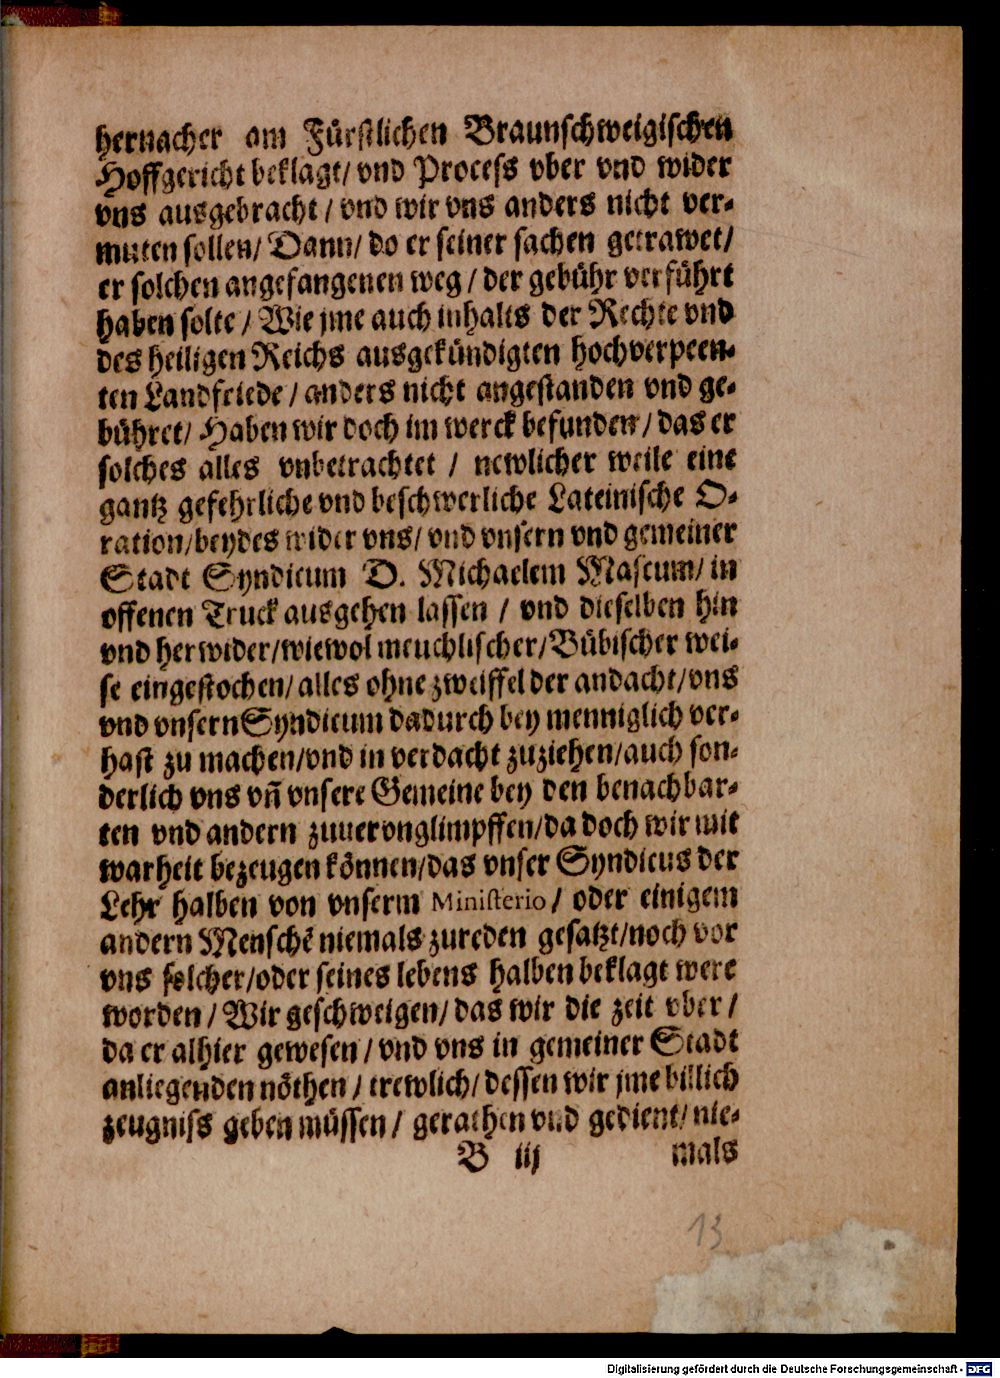 hernacher am Fürstlichen Braunschweigischen
Hoffgericht beklagt/ vnd Process vber vnd wider
vns ausgebracht / vnd wir vns anders nicht ver-
muten sollen/ Dann/ do er seiner sachen getrawet/
er solchen angefangenen weg / der gebühr verführt
haben solte / Wie jme auch inhalts der Rechte vnd
des heiligen Reichs ausgekündigten hochverpeen-
ten Landfriede / anders nicht angestanden vnd ge-
bühret/ Haben wir doch im werck befunden / das er
solches alles vnbetrachtet / newlicher weile eine
gantz gefehrliche vnd beschwerliche Lateinische O-
ration/beydes wider vns/ vnd vnsern vnd gemeiner
Stadt Syndicum D. Michaelem Mascum/ in
offenen Truck ausgehen lassen / vnd dieselben hin
vnd herwider/wiewol meuchlischer/Bübischer wei-
se eingestochen/ alles ohne zweiffel der andacht/ vns
vnd vnsern Syndicum dadurch bey menniglich ver-
hast zu machen/vnd in verdacht zuziehen/auch son-
derlich vns vñ vnsere Gemeine bey den benachbar-
ten vnd andern zuueronglimpffen/da doch wir mit
warheit bezeugen können/das vnser Syndicus der
Lehr halben von vnserm Ministerio / oder einigem
andern Menschẽ niemals zureden gesatzt/noch vor
vns solcher/oder seines lebens halben beklagt were
worden / Wir geschweigen/ das wir die zeit vber /
da er alhier gewesen / vnd vns in gemeiner Stadt
anliegenden nöthen / trewlich/ dessen wir jme billich
zeugniss geben müssen / gerathen vnd gedient/ nie-
B iij mals
13
Digitalisierung gefördert durch die Deutsche Forschungsgemeinschaft - DFG